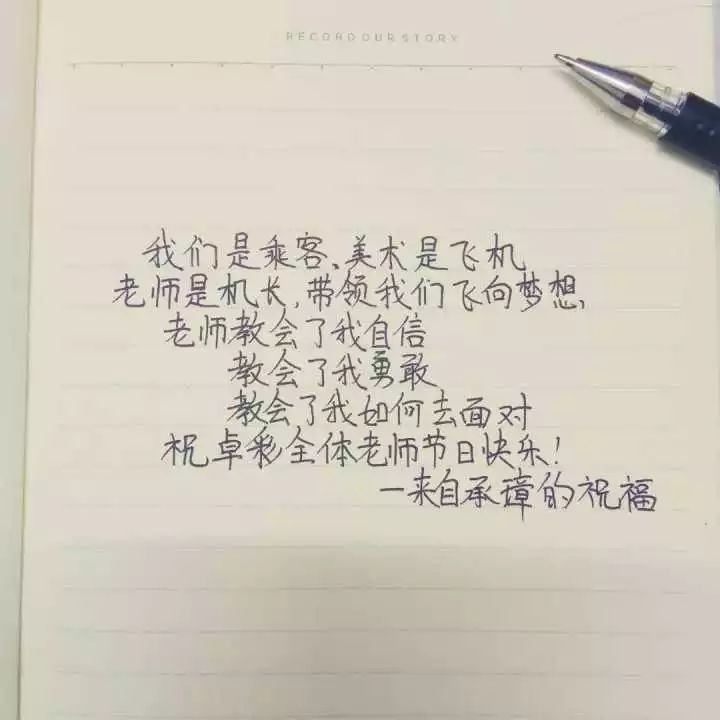 RECORD OUR STORY
我们是乘客、美术是飞机
老师是机长,带领我们飞向梦想,
老师教会了我自信
教会了我勇敢
教会了我如何去面对
祝卓彩全体老师节日快乐!
—来自承璋的祝福